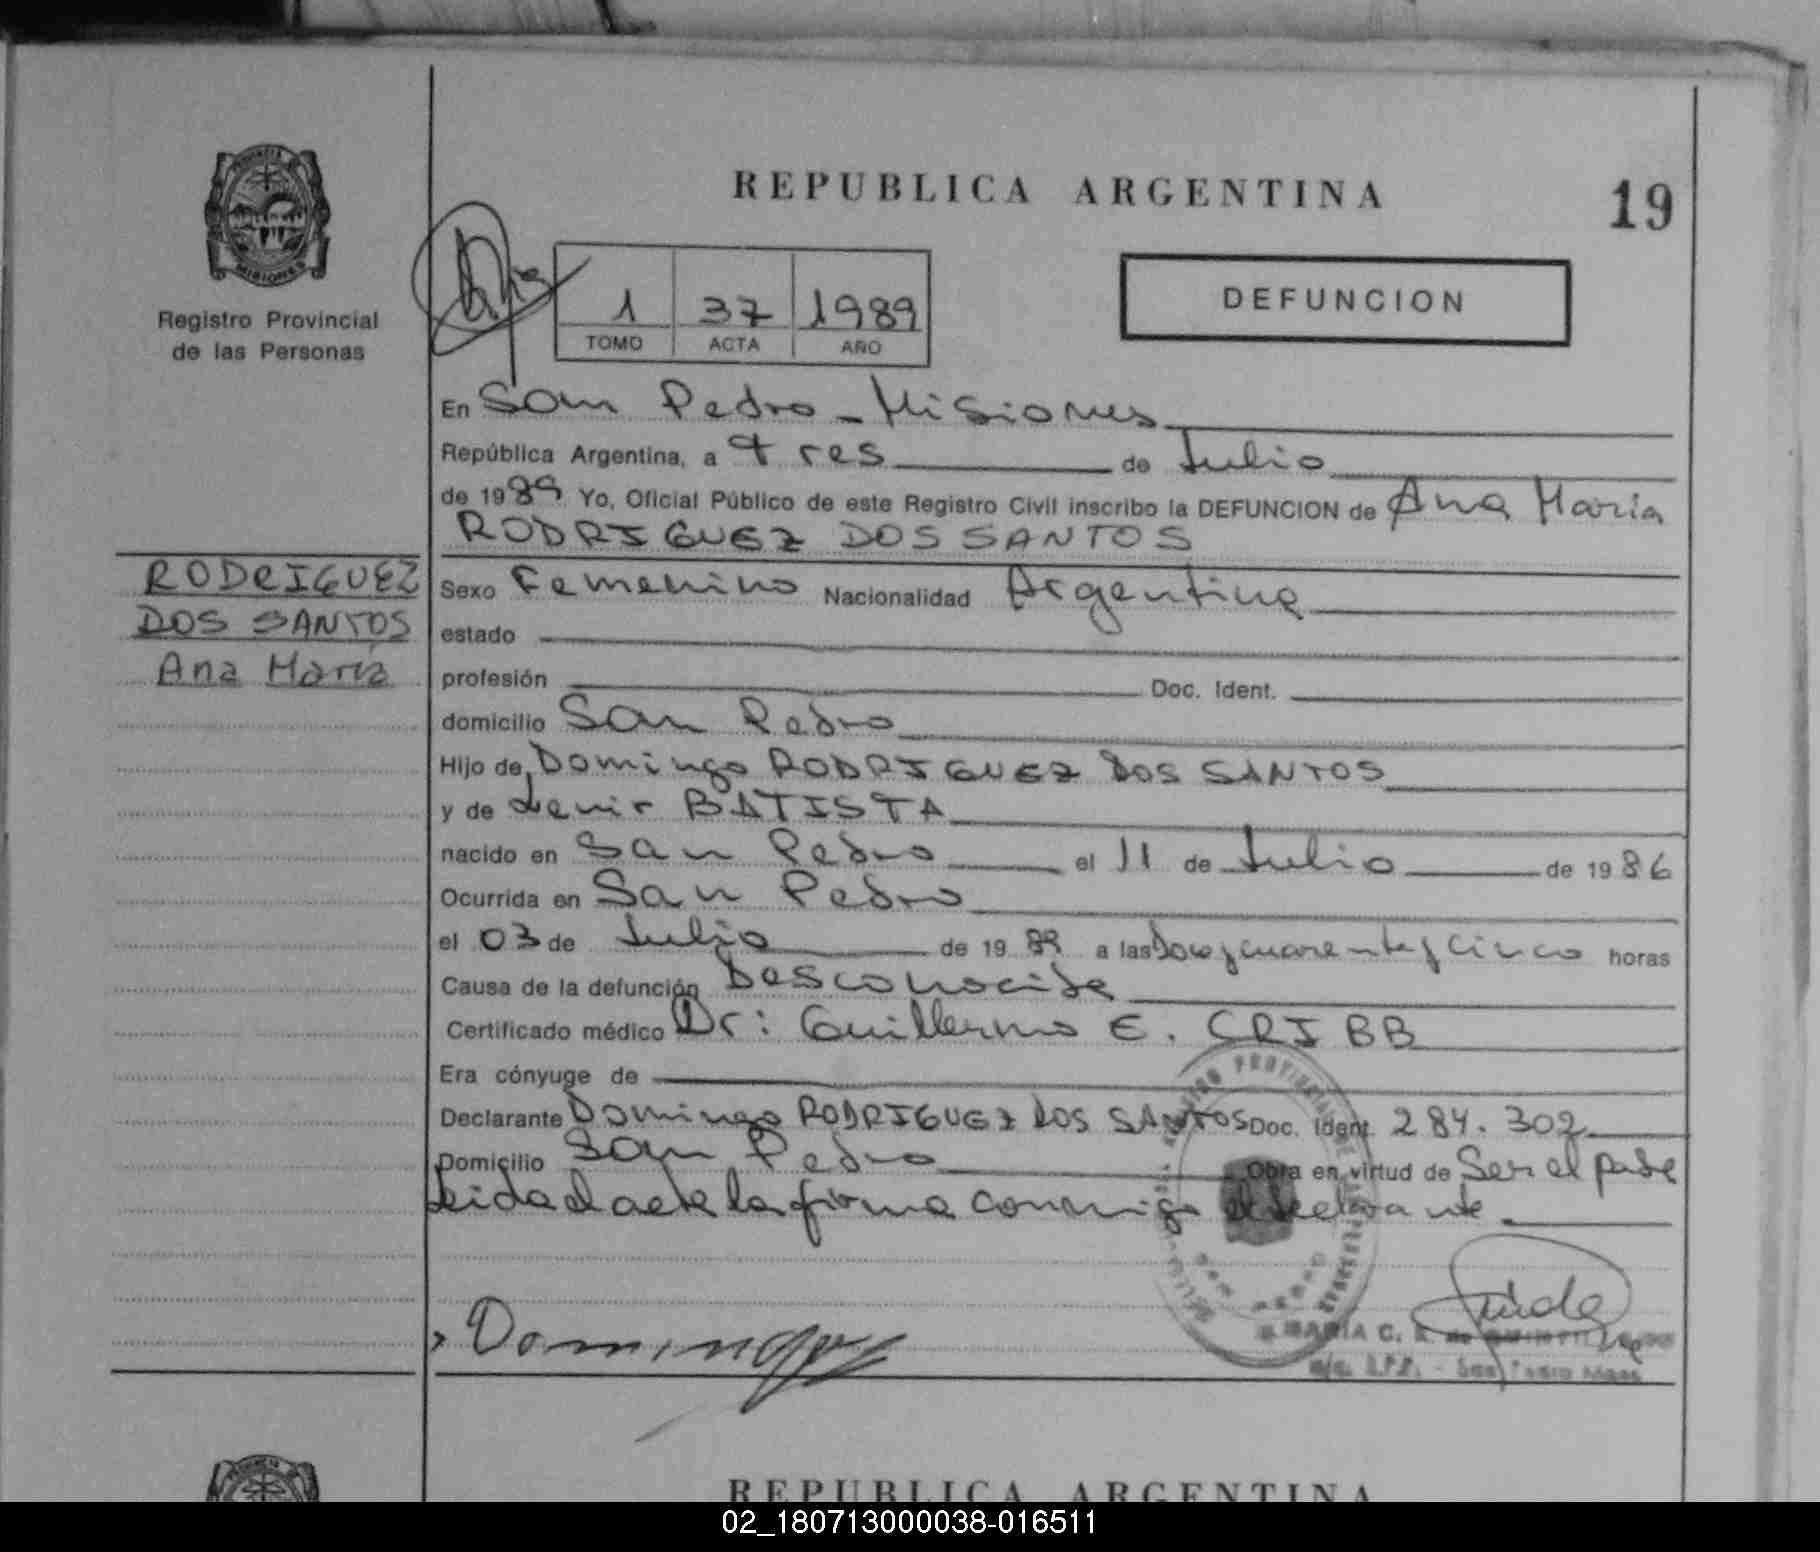 REPUBLICA ARGENTINA
19
PROVINCIA DE
MISIONES
Registro Provincial
de las Personas
1 37 1989
TOMO ACTA AÑO
DEFUNCION
En San Pedro - Misiones
República Argentina, a tres de Julio
de 1989 Yo, Oficial Público de este Registro Civil inscribo la DEFUNCION de Ana María
RODRIGUEZ DOS SANTOS
RODRIGUEZ
DOS SANTOS
Ana María
Sexo Femenino Nacionalidad Argentina
estado
profesión Doc. Ident.
domicilio San Pedro
Hijo de Domingo RODRIGUEZ DOS SANTOS
y de Lenir BATISTA
nacido en San Pedro el 11 de Julio de 1986
Ocurrida en San Pedro
el 03 de Julio de 1989 a las doce y cuarenta y cinco horas
Causa de la defunción Desconocida
Certificado médico Dr: Guillermo E. CRIBB
Era cónyuge de
Declarante Domingo RODRIGUEZ DOS SANTOS Doc. Ident. 284.302
Domicilio San Pedro Obra en virtud de Ser el padre
Leida el acta la firma conmigo el declarante
Domingo
MARIA C.
San Pedro
REPUBLICA ARGENTINA
02_180713000038-016511